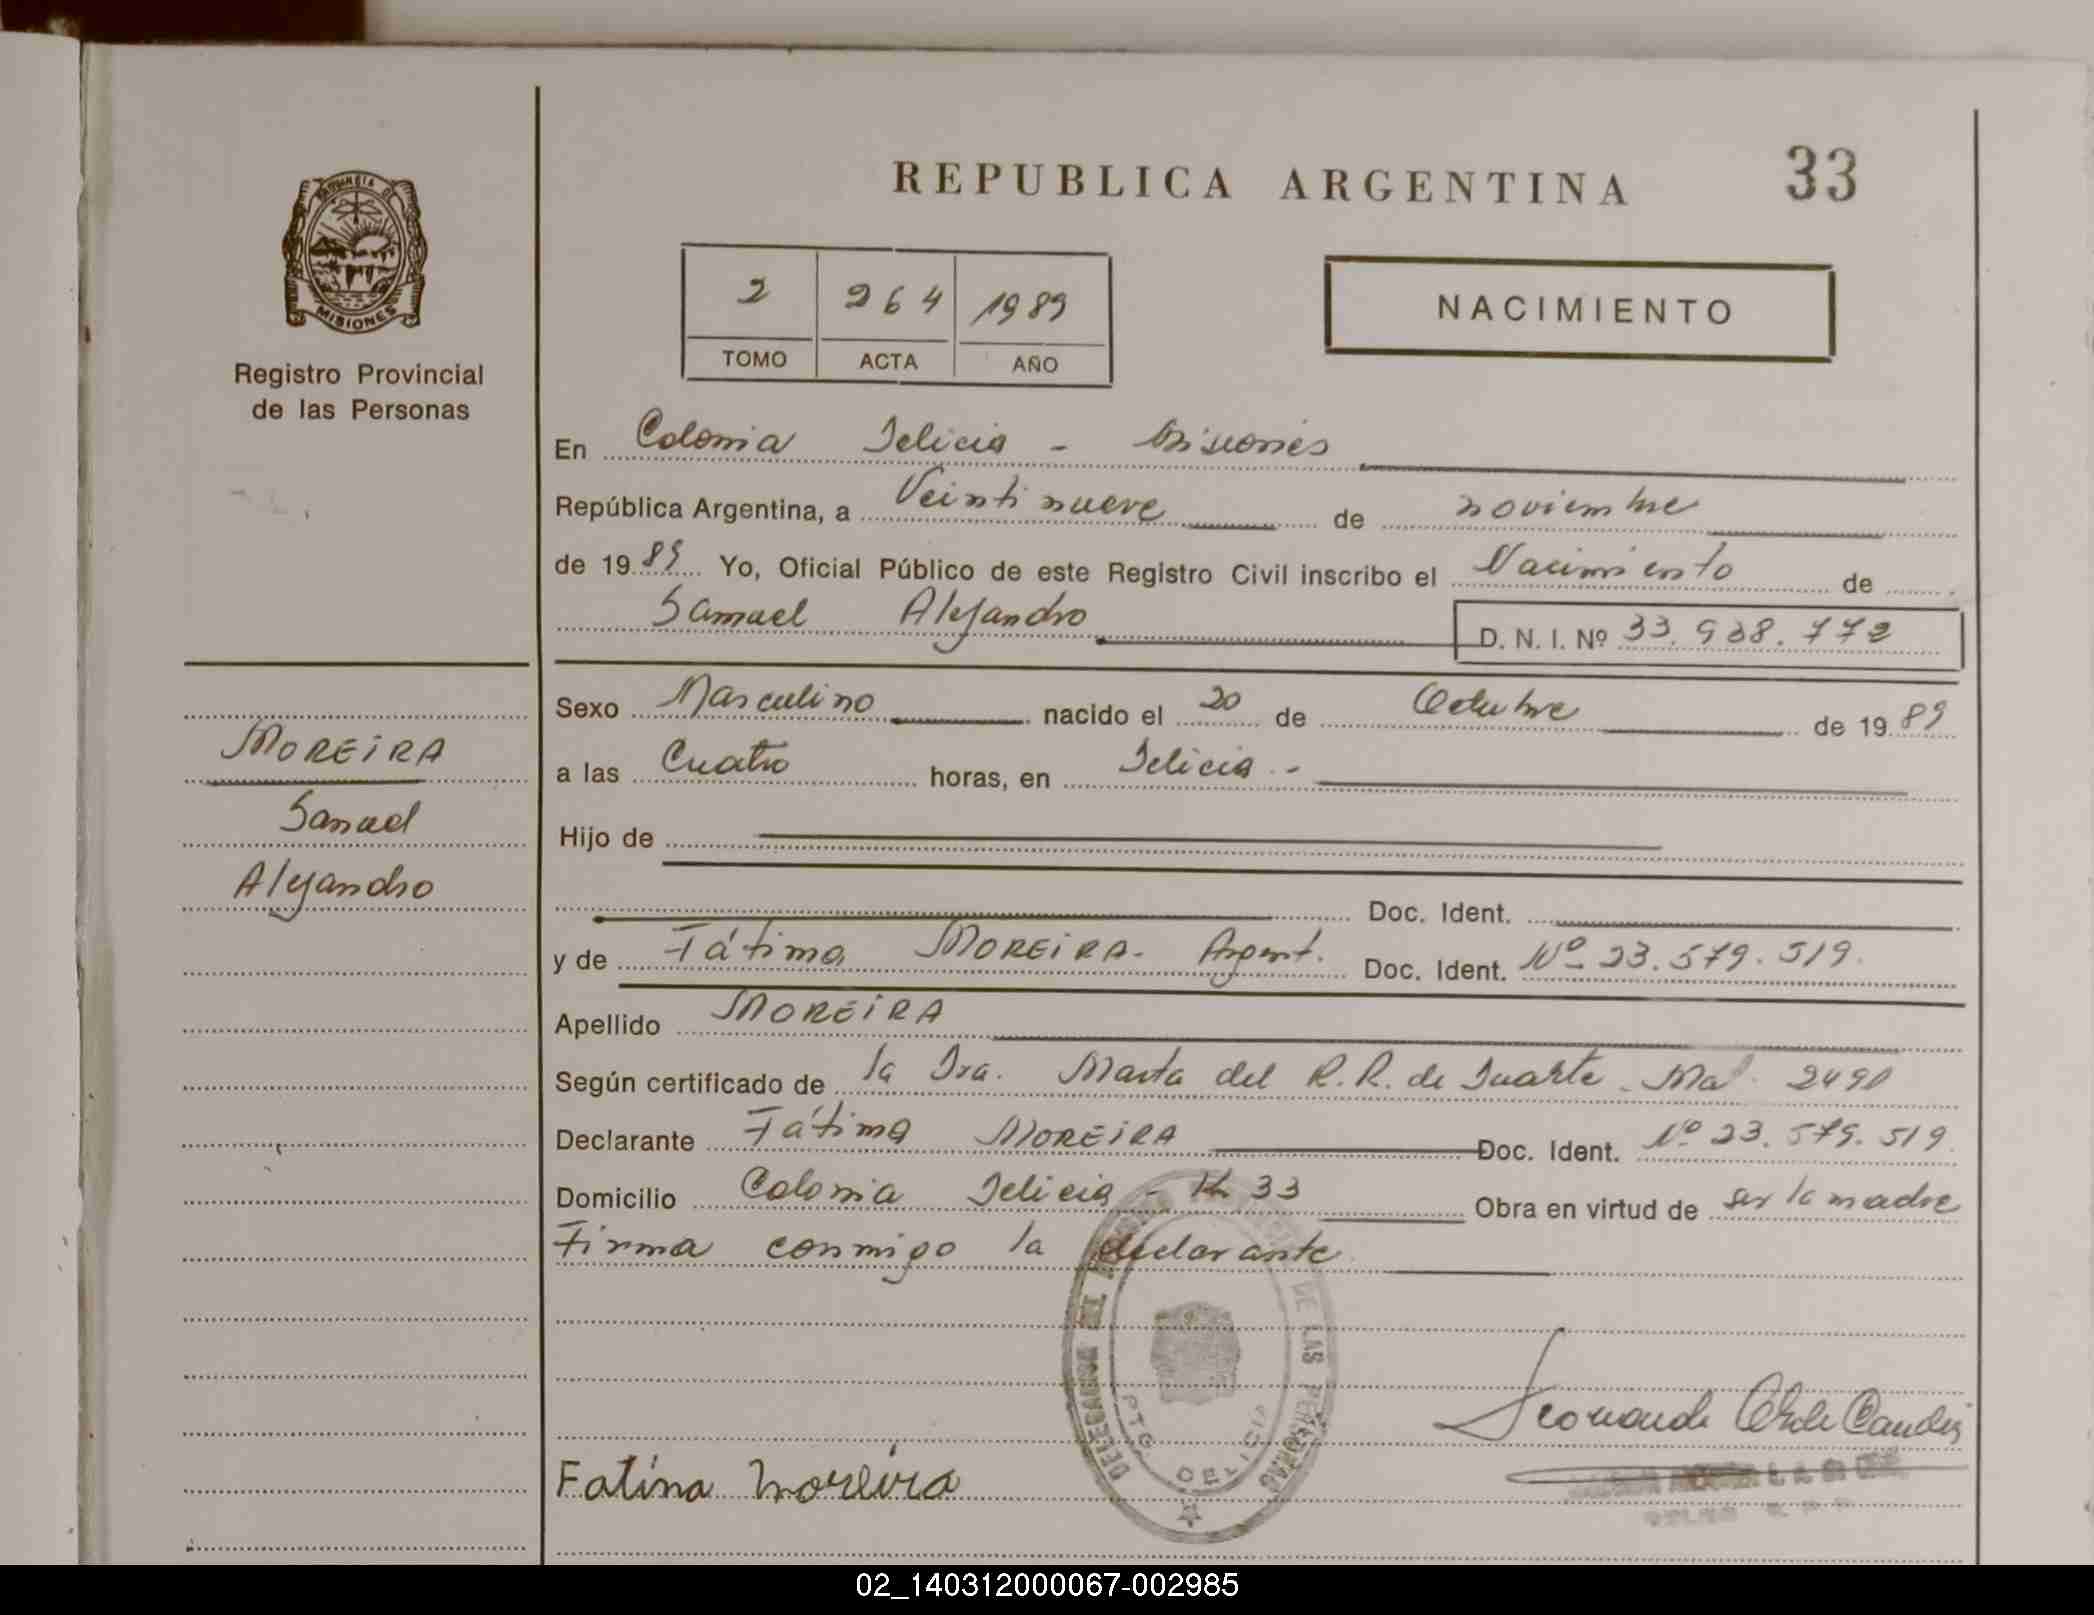 REPUBLICA ARGENTINA
33
PROVINCIA DE
MISIONES
Registro Provincial
de las Personas
2 264 1989
TOMO ACTA AÑO
NACIMIENTO
En Colonia Delicia - Misiones
República Argentina, a Veintinueve de noviembre
de 1989 Yo, Oficial Público de este Registro Civil inscribo el Nacimiento de
Samuel Alejandro D. N. I. Nº 33.938.772
MOREIRA
Samuel
Alejandro
Sexo Masculino nacido el 20 de Octubre de 1989
a las Cuatro horas, en Delicia.-
Hijo de
Doc. Ident.
y de Fátima MOREIRA- Argent. Doc. Ident. Nº 23.579.519.
Apellido MOREIRA
Según certificado de la Dra. Marta del R.R. de Duarte. Ma. 2490
Declarante Fátima MOREIRA Doc. Ident. Nº 23.579.519.
Domicilio Colonia Delicia - K 33 Obra en virtud de ser la madre
Firma conmigo la declarante.
DELEGACION DEL REGISTRO DE LAS PERSONAS
PTO. DELICIA
Fatima Moreira
02_140312000067-002985